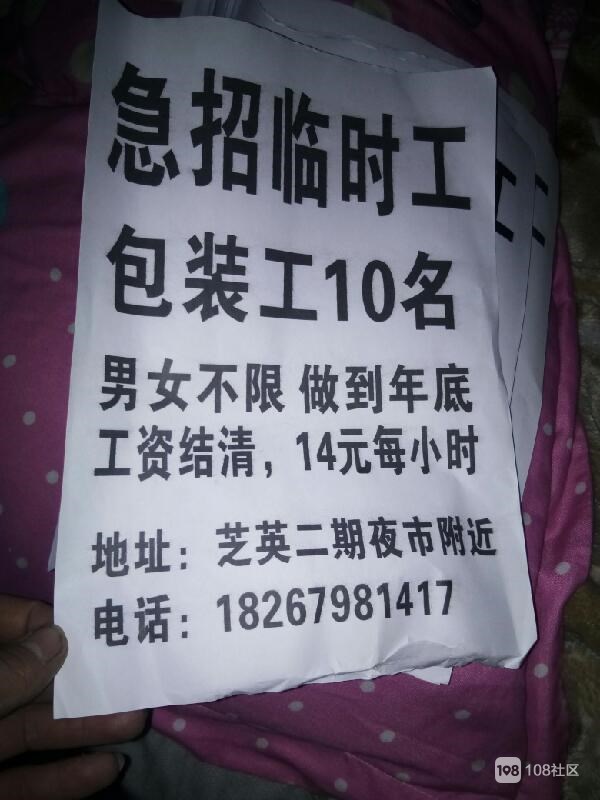 急招临时工
包装工10名
男女不限 做到年底
工资结清，14元每小时
地址：芝英二期夜市附近
电话：18267981417
工
二
108 108社区